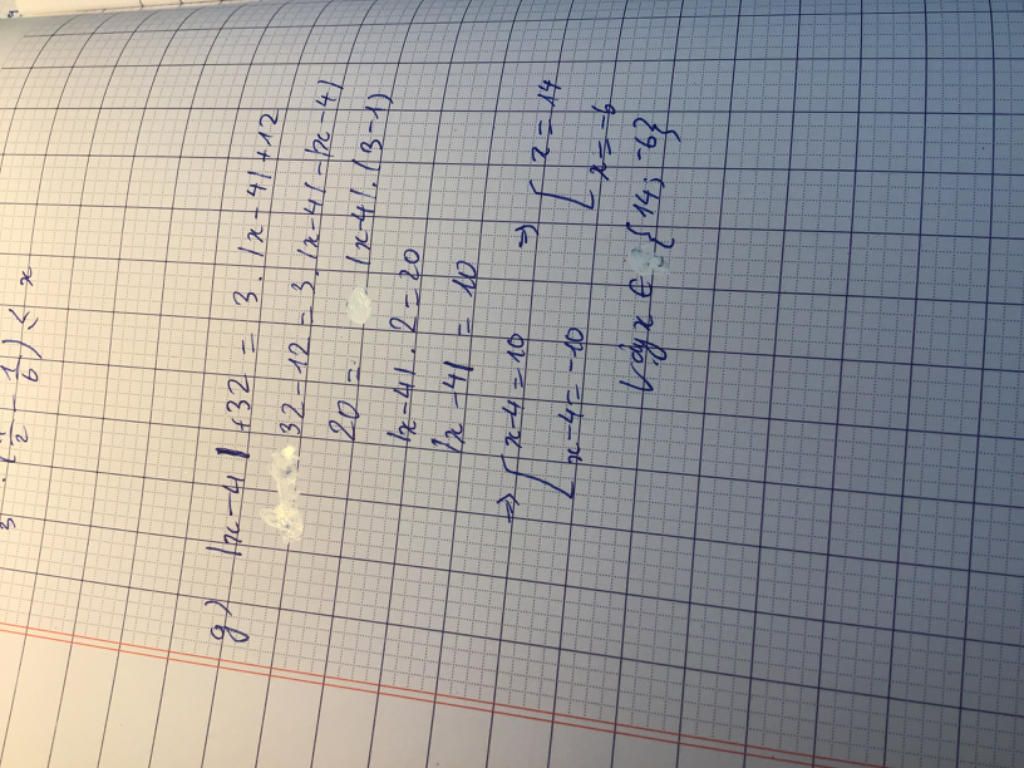 3 · (1/2 - 1/6) < x
g) |x-4| +32 = 3 . |x-4| +12
32 -12 = 3 . |x-4| - |x-4|
20 = |x-4| . (3-1)
|x-4| . 2 = 20
|x-4| = 10
=> [ x-4 = 10 => [ x = 14
[ x-4 = -10 [ x = -6
Vậy x ∈ {14; -6}